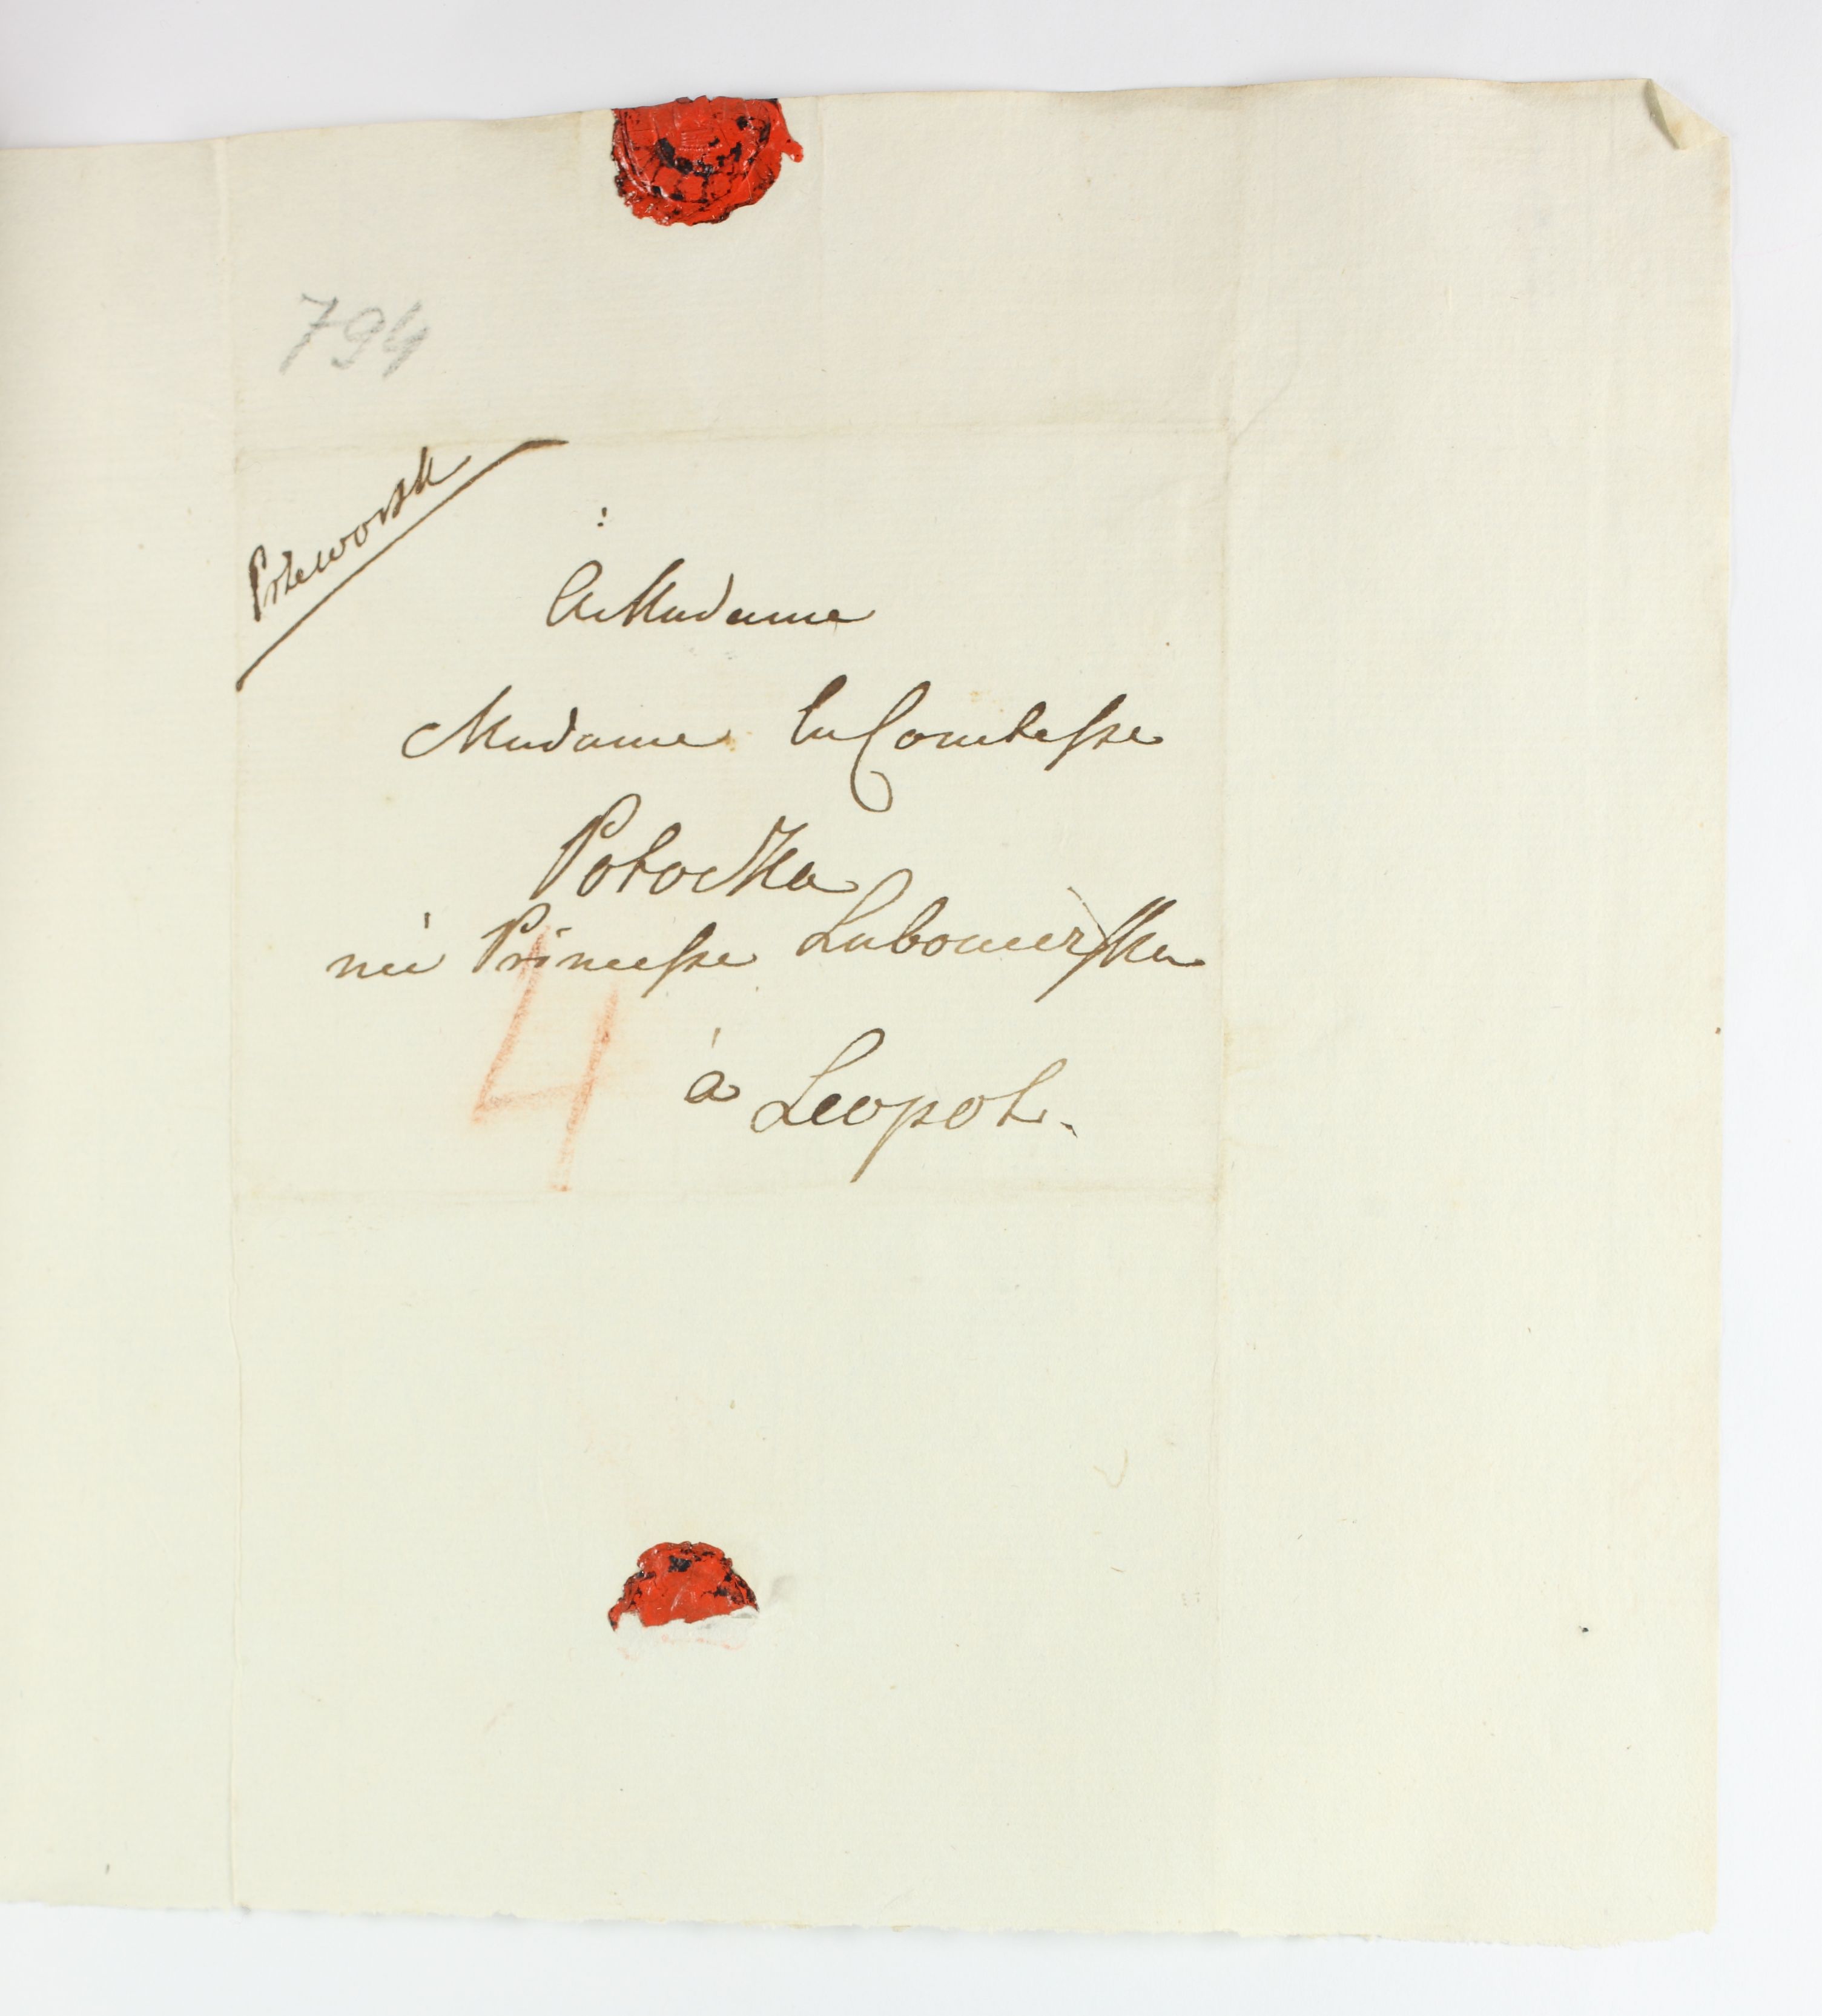 794
Przeworsk
A Madame
Madame la Comtesse
Potocka
née Princesse Lubomirska
4
à Leopol.